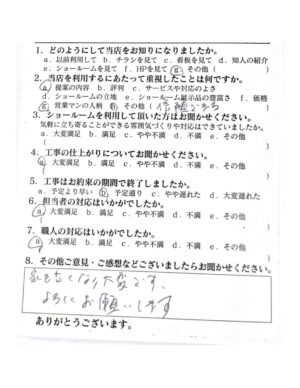 1. どのようにして当店をお知りになりましたか。
a. 以前利用して b. チラシを見て c. 看板を見て d. 知人の紹介
e. ショールームを見て f. HPを見て g. その他 (
2. 当店を利用するにあたって重視したことは何ですか。
a. 提案の内容 b. 評判 c. サービスや対応のよさ
d. ショールームの立地 e. ショールーム展示品の豊富さ f. 価格
g. 営業マンの人柄 h. その他 ( 信頼できる
3. ショールームを利用して頂いた方はお聞かせください。
気軽に立ち寄ることができる雰囲気づくりや対応はできていましたか。
a. 大変満足 b. 満足 c. やや不満 d. 不満 e. その他
( )
4. 工事の仕上がりについてお聞かせください。
a. 大変満足 b. 満足 c. やや不満 d. 不満 e. その他
( )
5. 工事はお約束の期間で終了しましたか。
a. 予定より早い b. 予定通り c. やや遅れた d. 大変遅れた
6. 担当者の対応はいかがでしたか。
a. 大変満足 b. 満足 c. やや不満 d. 不満 e. その他
( )
7. 職人の対応はいかがでしたか。
a. 大変満足 b. 満足 c. やや不満 d. 不満 e. その他
( )
8. その他ご意見・ご感想などございましたらお聞かせください。
家も古くなり大変です、
よろしくお願いします
ありがとうございます。